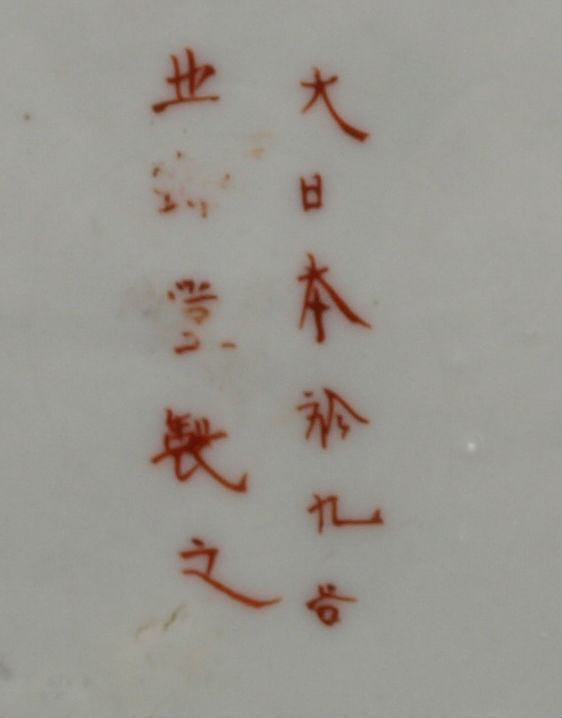 大日本於九谷
製之